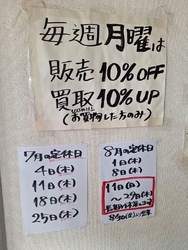 毎週月曜は
販売10%OFF
買取10%UP
(お買物した方のみ)
7月の定休日
4日(木)
11日(木)
18日(木)
25日(木)
8月の定休日
1日(木)
8日(木)
11日(日)
〜29日(木)